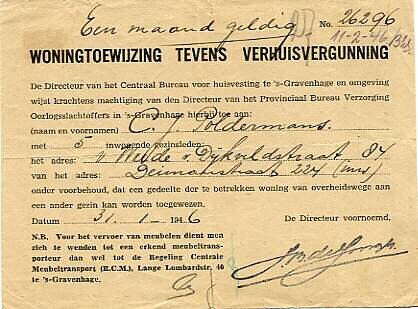 Een maand geldig No. 26296
11-2-'46
WONINGTOEWIJZING TEVENS VERHUISVERGUNNING
De Directeur van het Centraal Bureau voor huisvesting te 's-Gravenhage en omgeving
wijst krachtens machtiging van den Directeur van het Provinciaal Bureau Verzorging
Oorlogsslachtoffers in 's-Gravenhage hierbij toe aan:
(naam en voornamen) C. J. Poldermans.
met 5 inwonende gezinsleden,
het adres: v Weede v Dijkveldstraat 84
van het adres: Deimanstraat 224
onder voorbehoud, dat een gedeelte der te betrekken woning van overheidswege aan
een ander gezin kan worden toegewezen.
Datum 31-1-1946 De Directeur voornoemd,
N.B. Voor het vervoer van meubelen dient men
zich te wenden tot een erkend meubeltrans-
porteur dan wel tot de Regeling Centrale
Meubeltransport (R.C.M.), Lange Lombardstr. 40
te 's-Gravenhage.